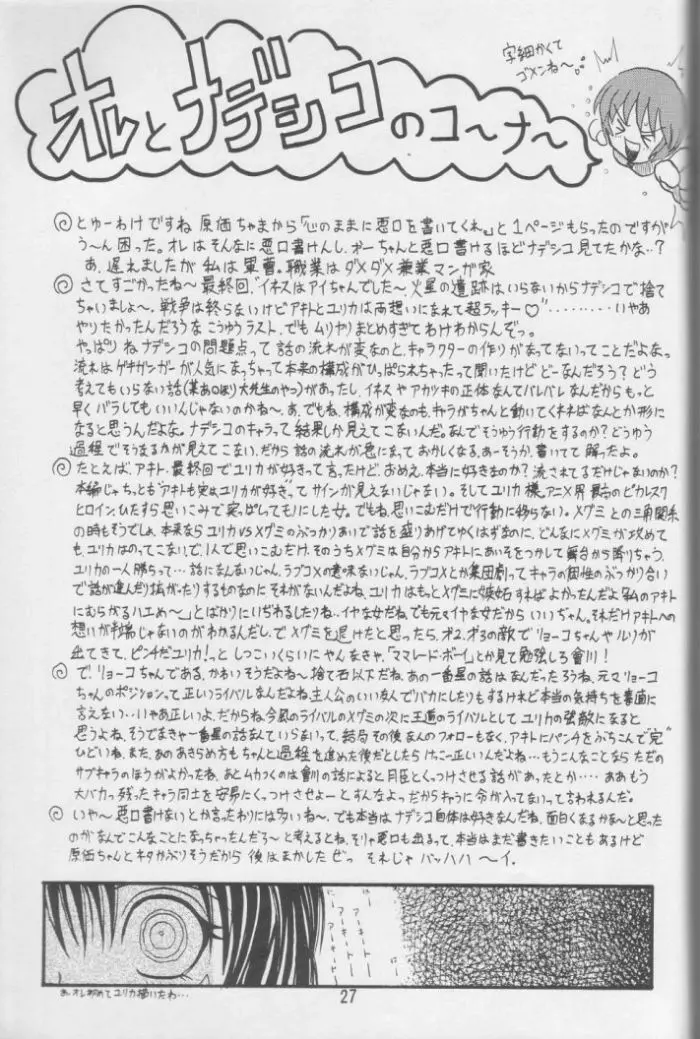 オレとナデシコのコ〜ナ〜
字細かくて
ゴメンね〜。。
とゆーわけですね 原価ちゃまから「心のままに悪口を書いてくれ。」と1ページもらったのですが
う〜ん困った。オレはそんなに悪口書けんし、オーちゃんと悪口書けるほどナデシコ見てたかな..?
あ、遅れましたが 私は軍曹。職業はダメダメ兼業マンガ家
さてすごかったね〜最終回、"イネスはアイちゃんでした〜火星の遺跡はいらないからナデシコで捨て
ちゃいましょ〜、戦争は終らないけどアキトとユリカは両想いになれて超ラッキー♡"………いやあ
やりたかったんだろうな こうゆうラスト、でもムリヤリまとめすぎてわけわからんぞっ。
やっぱりねナデシコの問題点って話の流れが変なのと、キャラクターの作りがなってないってことだよなっ
流れはゲキガンガーが人気になっちゃって本来の構成がひっぱられちゃったって聞いたけどどーなんだろう?どう
考えてもいらない話(某あ○ほり大先生のやつ)があったし、イネスやアカツキの正体なんてバレバレなんだからもっと
早くバラしてもいいんじゃないのかね〜あ、でもね、構成が変なのも、キャラがちゃんと動いてくれればなんとか形に
なると思うんだよな。ナデシコのキャラって結果しか見えてこないんだ。なんでそうゆう行動をするのか?どうゆう
過程でそうなるかが見えてこない、だから話の流れが急になっておかしくなる、あーそうか、書いてて解ったよ。
たとえば、アキト、最終回でユリカが好きって言ったけど、おめえ、本当に好きなのか?流されてるだけじゃないのか?
本編じゃちっとも"アキトも実はユリカが好き"ってサインが見えないじゃない。そしてユリカ様、アニメ界最高のピカレスク
ヒロイン、ひたすら思いこみで突っぱしてモノにした女。でもね、思いこむだけで行動に移らない。メグミとの三角関係
の時もそうでしょ、本来ならユリカVSメグミのぶっかりあいで話を盛りあげてゆくはずなのに、どんなにメグミが攻めて
も、ユリカはのってこないで、1人で思いこむだけ、そのうちメグミは自分からアキトにあいそをつかして舞台から降りちゃう、
ユリカの一人勝ちって…話になんないじゃん、ラブコメの意味ないじゃん。ラブコメとか集団劇ってキャラの個性のぶっかり合い
で話が進んだり拡がったりするものなのにそれがないんだよね、ユリカはもっとメグミに嫉妬すればよかったんだよ「私のアキト
にむらがるハエめ〜」とばかりにいぢわるしたりね…イヤな女だね、でも元々イヤな女だからいいぢゃん。それだけアキトへの
想いが半端じゃないのがわかるんだし、で メグミを退けたと思ったら、オ2、オ3の敵でリョーコちゃんやルリが
出てきて、ピンチだユリカ!っと しつこいくらいに やんなきゃ、「ママレード・ボーイ」とか見て勉強しろ 會川!
で、リョーコちゃんである、かわいそうだよね〜捨て石以下だね、あの一番星の話はなんだったろうね、元々リョーコ
ちゃんのポジションって正しいライバルなんだよね、主人公のいい友人でバカにしたりもするけれど本当の気持ちを素直に
言えない…いやあ正しいよ、だからね、今風のライバルのメグミの次に王道のライバルとして ユリカの強敵になると
思うよね、そうでなきゃ一番星の話なんていらないって、結局その後なんのフォローもなく、アキトにパンチをぶちこんで"完"
ひどいね、また、あのあきらめ方もちゃんと過程を進めた後だとしたらけっこー正しいんだよね…もうこんなことなら ただの
サブキャラのほうがよかったね、あとムカつくのは會川の話によると月臣とくっつけさせる話があったとか…ああもう
大バカっ 残ったキャラ同士を安易にくっつけさせよーとすんなよっ だからキャラに命が入ってないって言われるんだ。
いや〜悪口書けないとか言ったわりには多いね〜、でも本当はナデシコ自体は好きなんだね、面白くなるかな〜と思った
のが なんでこんなことになっちゃったんだろ〜と考えるとね、そりゃ悪口も出るって、本当はまだ書きたいこともあるけど
原価ちゃんとネタかぶりそうだから 後はまかしたぜっ それじゃ バッハハ〜イ。
はー
アーキート―
アーキート―
に―
はー
あ、オレ初めてユリカ描いたわ…
27